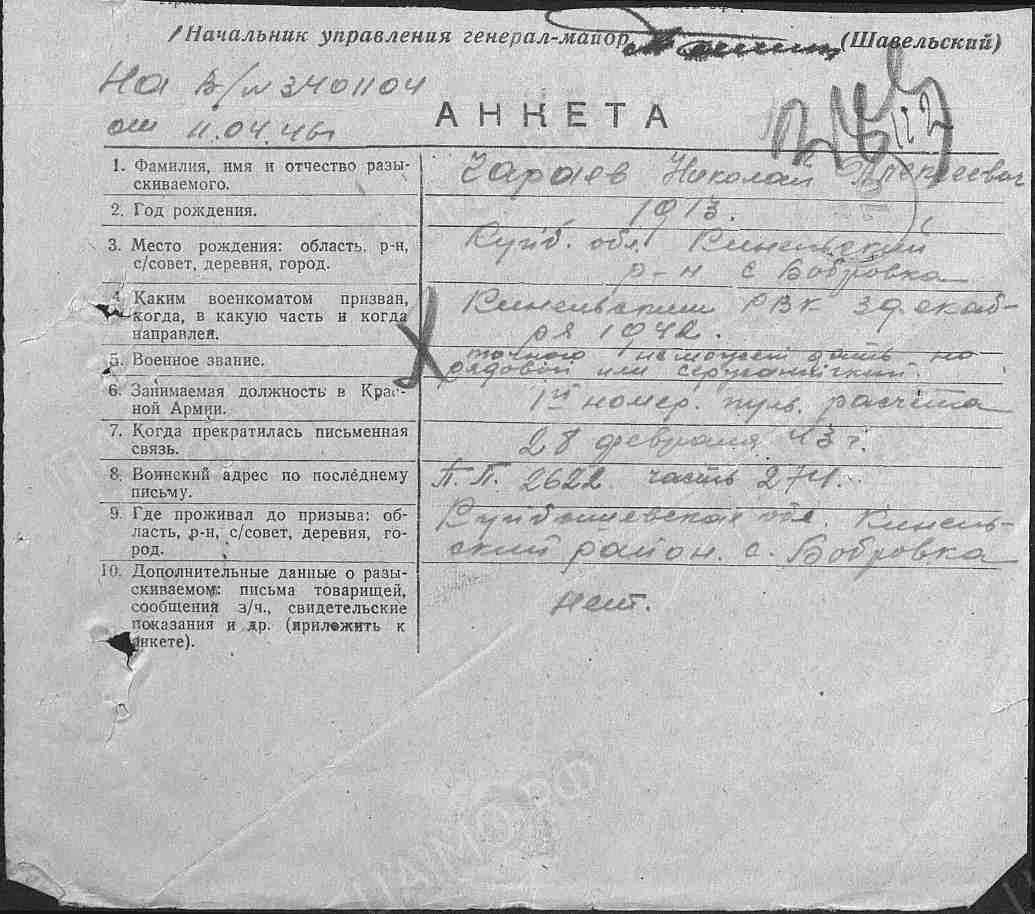 Начальник управления генерал-майор (Шавельский)
На в/№ 3401104
от 11.04.46г
АНКЕТА
1. Фамилия, имя и отчество разы-
скиваемого.
Чараев Николай Алексеевич
2. Год рождения.
1913.
3. Место рождения: область, р-н,
с/совет, деревня, город.
Куйб. обл. Кинельский
р-н с Бобровка
4. Каким военкоматом призван,
когда, в какую часть и когда
направлен.
Кинельским РВК 3 декаб-
ря 1942.
5. Военное звание.
точного неможем дать но
рядовой или сержантский.
6. Занимаемая должность в Крас-
ной Армии.
1ый номер. пул. расчёта
7. Когда прекратилась письменная
связь.
28 февраля 43 г.
8. Воинский адрес по последнему
письму.
П.П. 2622 часть 274.
9. Где проживал до призыва: об-
ласть, р-н, с/совет, деревня, го-
род.
Куйбышевская обл. Кинель-
ский район. с. Бобровка
10. Дополнительные данные о разы-
скиваемом: письма товарищей,
сообщения з/ч., свидетельские
показания и др. (приложить к
анкете).
Нет.
ЦАМО.РФ